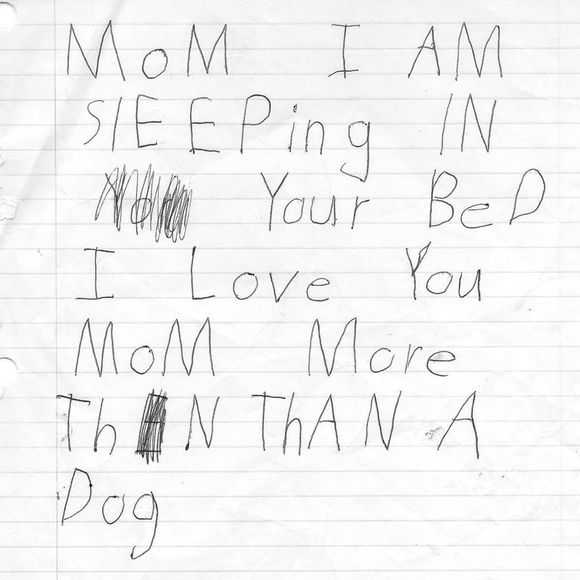 MoM I AM
SlEEPing IN
Your BeD
I Love You
MoM More
Th N ThAN A
Dog